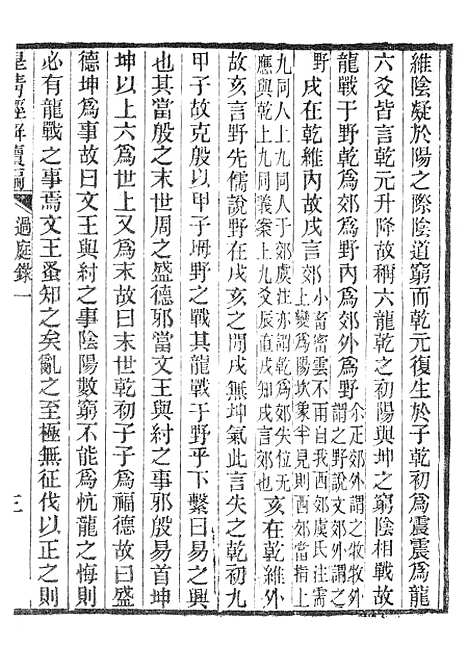 維陰凝於陽之際陰道窮而乾元復生於子乾初爲震震爲龍
六爻皆言乾元升降故稱六龍乾之初陽與坤之窮陰相戰故
龍戰于野乾爲郊爲野內爲郊外爲野尒疋郊外謂之牧牧外謂之野說文郊外謂之
野戌在乾維內故戌言郊小畜密雲不雨自我西郊虞氏注需上變爲陽坎象半見則西郊當指上
九同人上九同人于郊虞注亦謂乾爲郊失位无應與乾上九同義案上九爻辰直戌知戌言郊也亥在乾維外
故亥言野先儒說野在戌亥之閒戌無坤氣此言失之乾初九
甲子故克殷以甲子坶野之戰其龍戰于野乎下繫曰易之興
也其當殷之末世周之盛德邪當文王與紂之事邪殷易首坤
坤以上六爲世上又爲末故曰末世乾初子子爲福德故曰盛
德坤爲事故曰文王與紂之事陰陽數窮不能爲忼龍之悔則
必有龍戰之事焉文王蚤知之矣亂之至極無征伐以正之則
皇清經解續編 過庭錄一 三